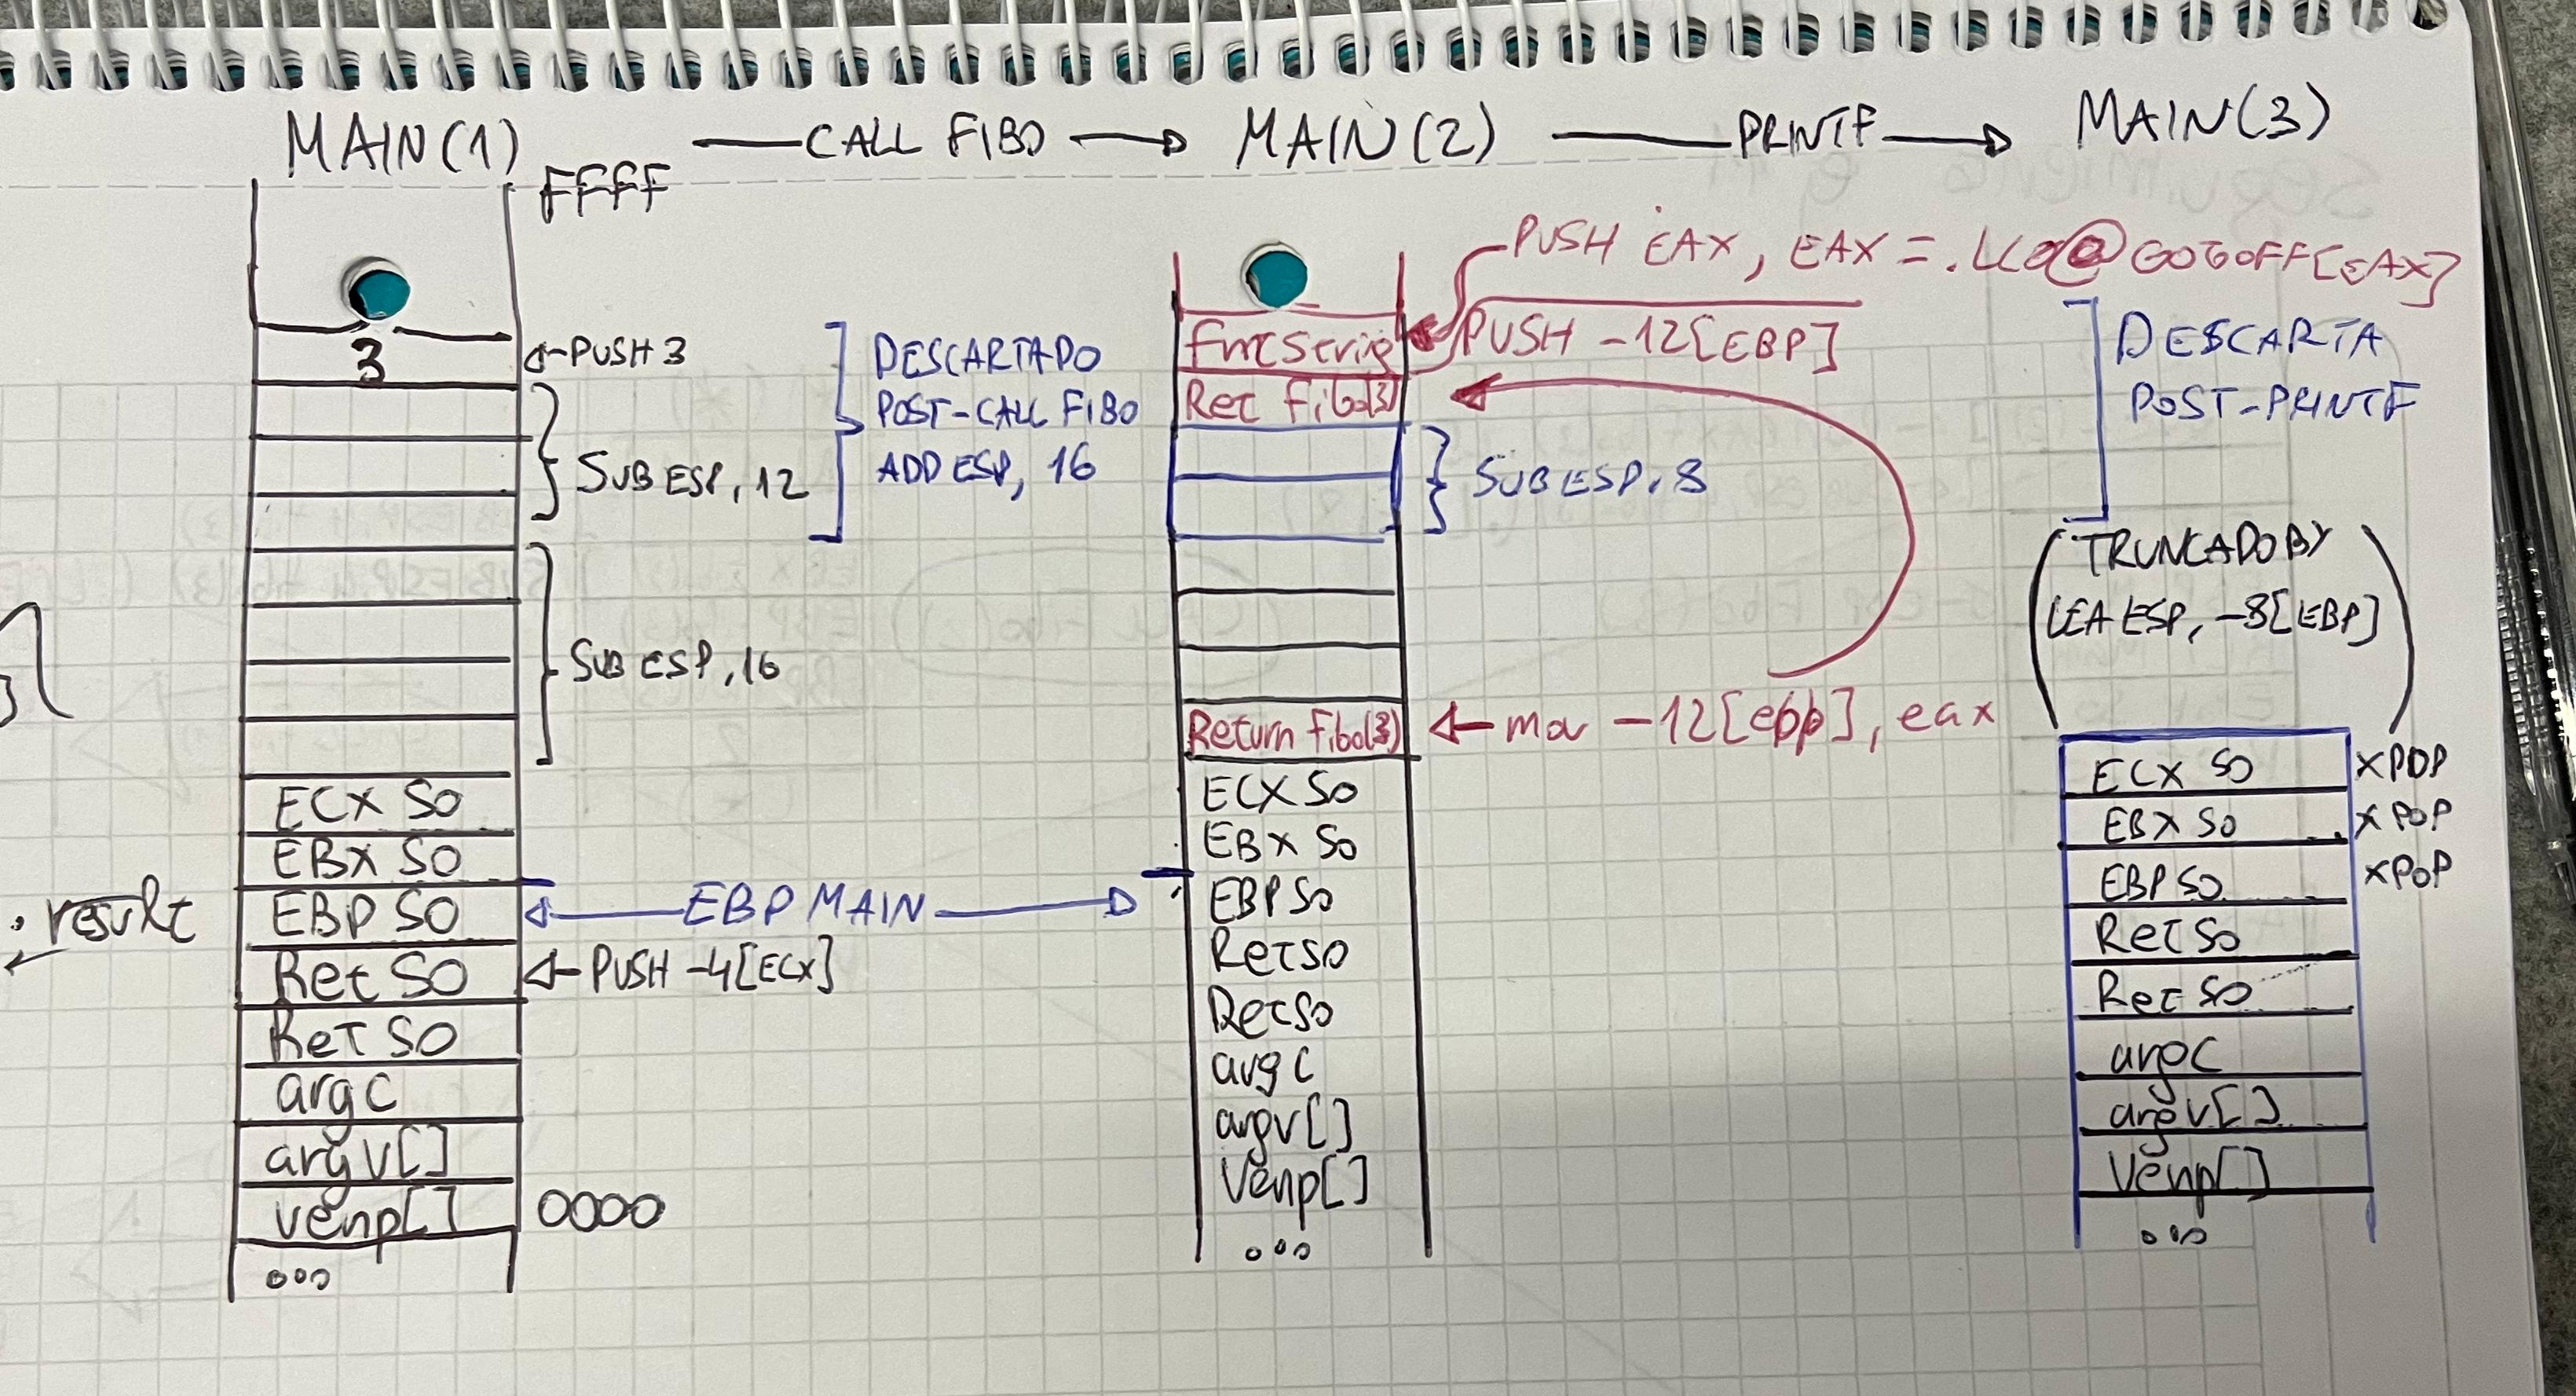 MAIN(1) — CALL FIBO → MAIN(2) — PRINTF → MAIN(3)
FFFF
3
←PUSH 3
SUB ESP, 12
DESCARTADO
POST-CALL FIBO
ADD ESP, 16
SUB ESP, 16
ECX SO
EBX SO
EBP SO
Ret SO
Ret SO
argc
argv[]
venp[]
ooo
. result
← EBP MAIN →
← PUSH -4[ECX]
0000
PUSH EAX, EAX = .LC0@GOTOFF[EAX]
PUSH -12[EBP]
FmtString
Ret Fibo(3)
SUB ESP, 8
Return Fibo(3)
← mov -12[ebp], eax
ECX SO
EBX SO
EBP SO
Ret SO
Ret SO
argc
argv[]
Venp[]
ooo
DESCARTA
POST-PRINTF
(TRUNCADO BY
LEA ESP, -8[EBP])
ECX SO xPOP
EBX SO xPOP
EBP SO xPOP
Ret SO
Ret SO
argc
argv[]
Venp[]
ooo